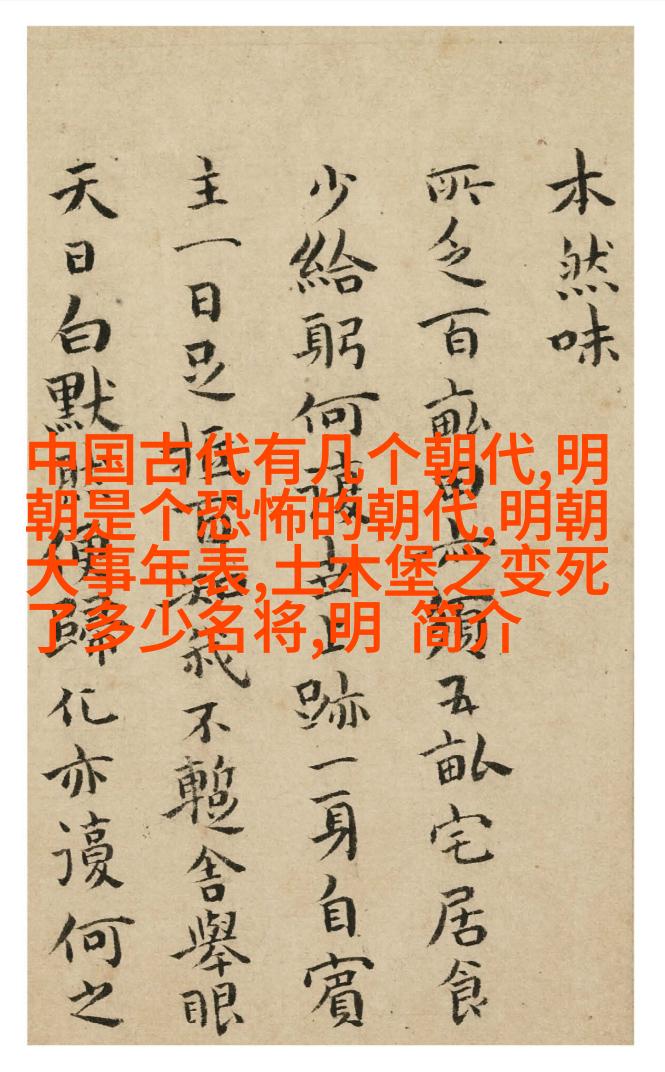 本然味
所乏百畝五畝宅居食
少給躬何世上跡一身自賓
主一日足我不暫舍舉眼
天日白默然便歸化亦謾何之
中国古代有几个朝代,明
朝是个恐怖的朝代,明朝
大事年表,土木堡之变死
了多少名将,明 简介